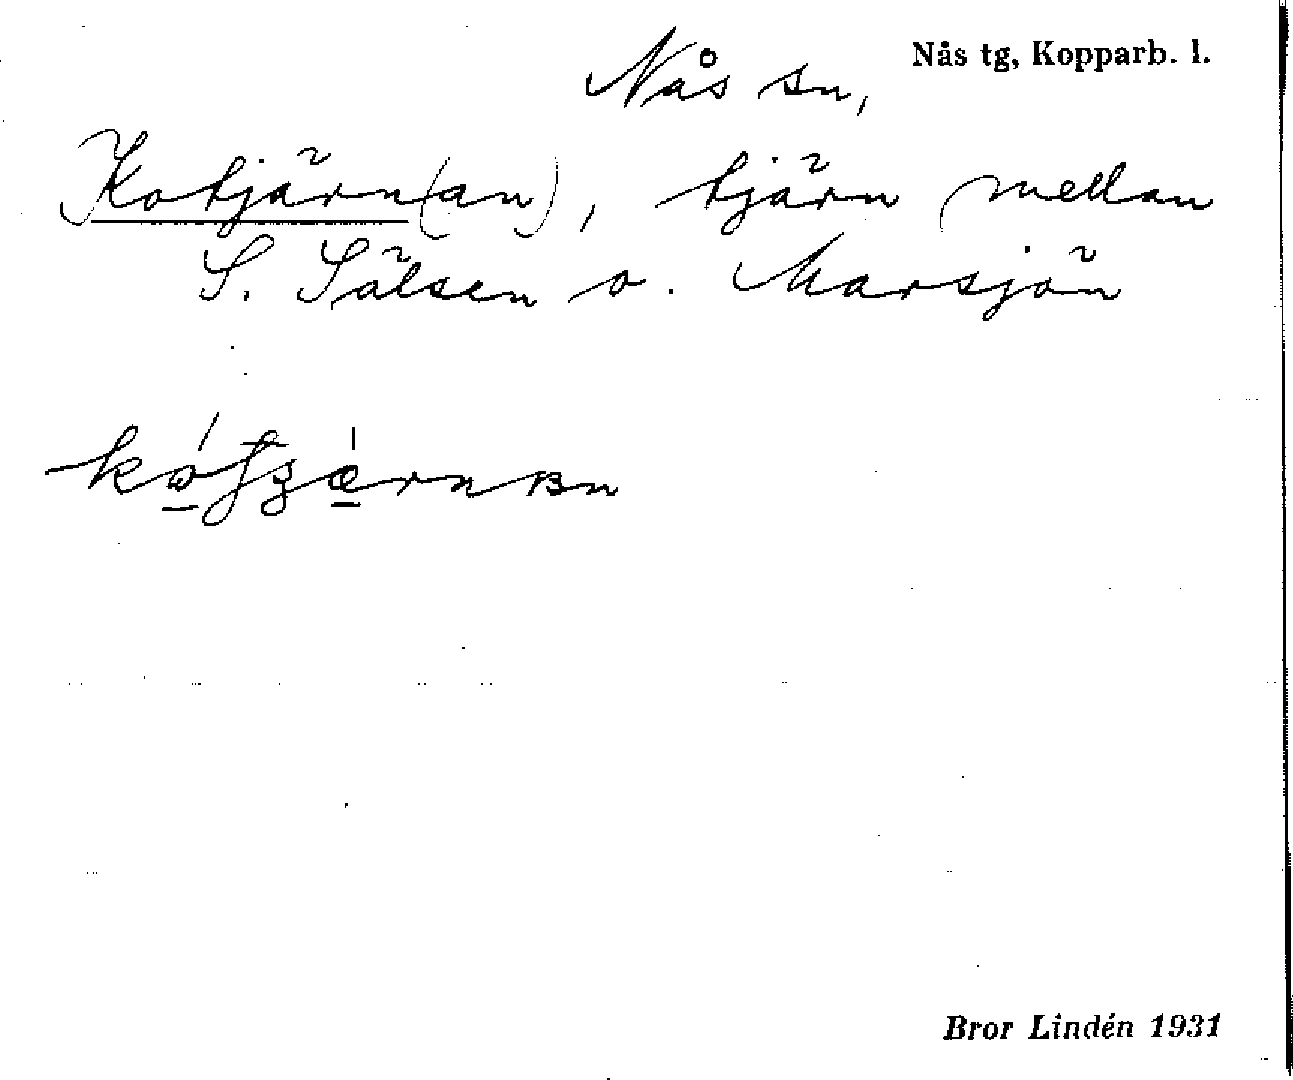 Nås tg, Kopparb. l.
Nås sn,
Kotjärn(an), tjärn mellan
S. Sälsen o. Marsjön
Bror Lindén 1931